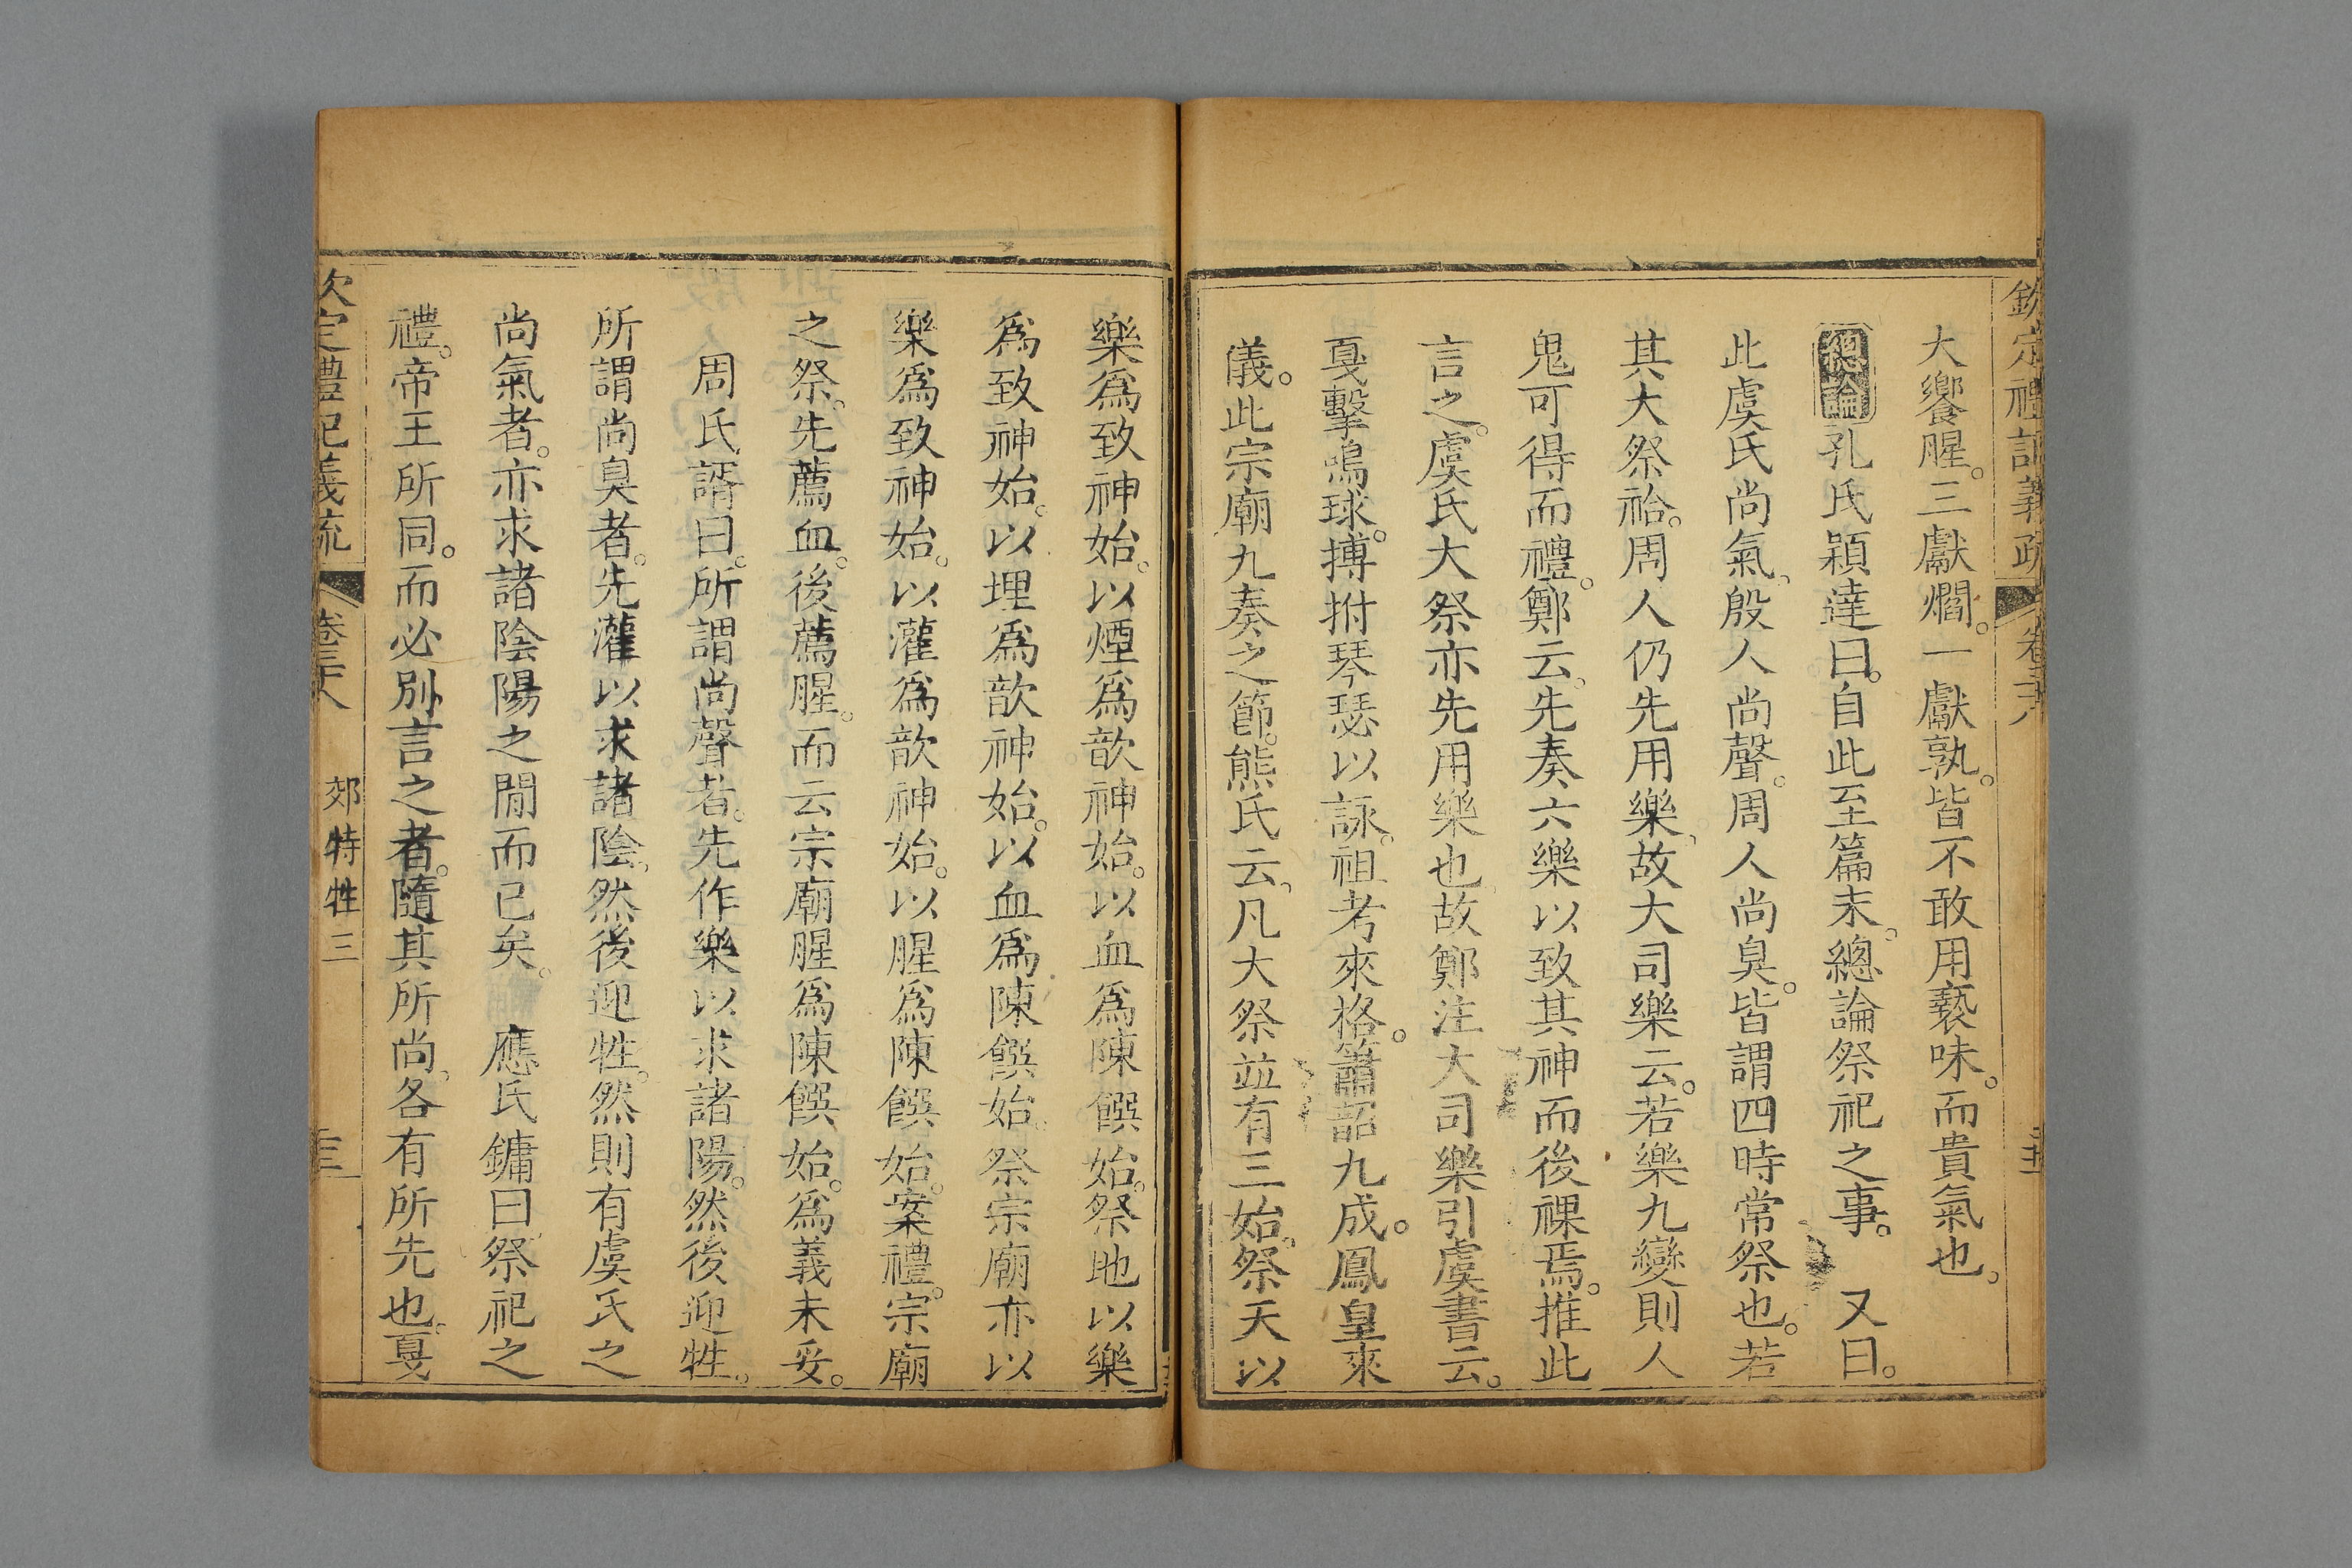 欽定禮記義疏 卷三十八
大饗腥。三獻爓。一獻孰。皆不敢用褻味。而貴氣也。
總論 孔氏穎達曰。自此至篇末。總論祭祀之事。 又曰。
此虞氏尚氣、殷人尚聲。周人尚臭。皆謂四時常祭也。若
其大祭祫。周人仍先用樂、故大司樂云。若樂九變則人
鬼可得而禮。鄭云。先奏六樂以致其神而後祼焉。推此
言之。虞氏大祭亦先用樂也、故鄭注大司樂引虞書云。
戛擊鳴球。搏拊琴瑟以詠。祖考來格。簫韶九成。鳳皇來
儀。此宗廟九奏之節。熊氏云、凡大祭並有三始。祭天以
樂爲致神始。以煙爲歆神始。以血爲陳饌始。祭地以樂
爲致神始。以埋爲歆神始。以血爲陳饌始。祭宗廟亦以
樂爲致神始。以灌爲歆神始。以腥爲陳饌始。案禮。宗廟
之祭。先薦血。後薦腥。而云宗廟腥爲陳饌始。爲義未妥。
周氏諝曰。所謂尚聲者。先作樂以求諸陽。然後迎牲。
所謂尚臭者。先灌以求諸陰、然後迎牲。然則有虞氏之
尚氣者。亦求諸陰陽之閒而已矣。 應氏鏞曰、祭祀之
禮。帝王所同。而必別言之者。隨其所尚、各有所先也。戛
欽定禮記義疏 卷三十八 郊特牲三